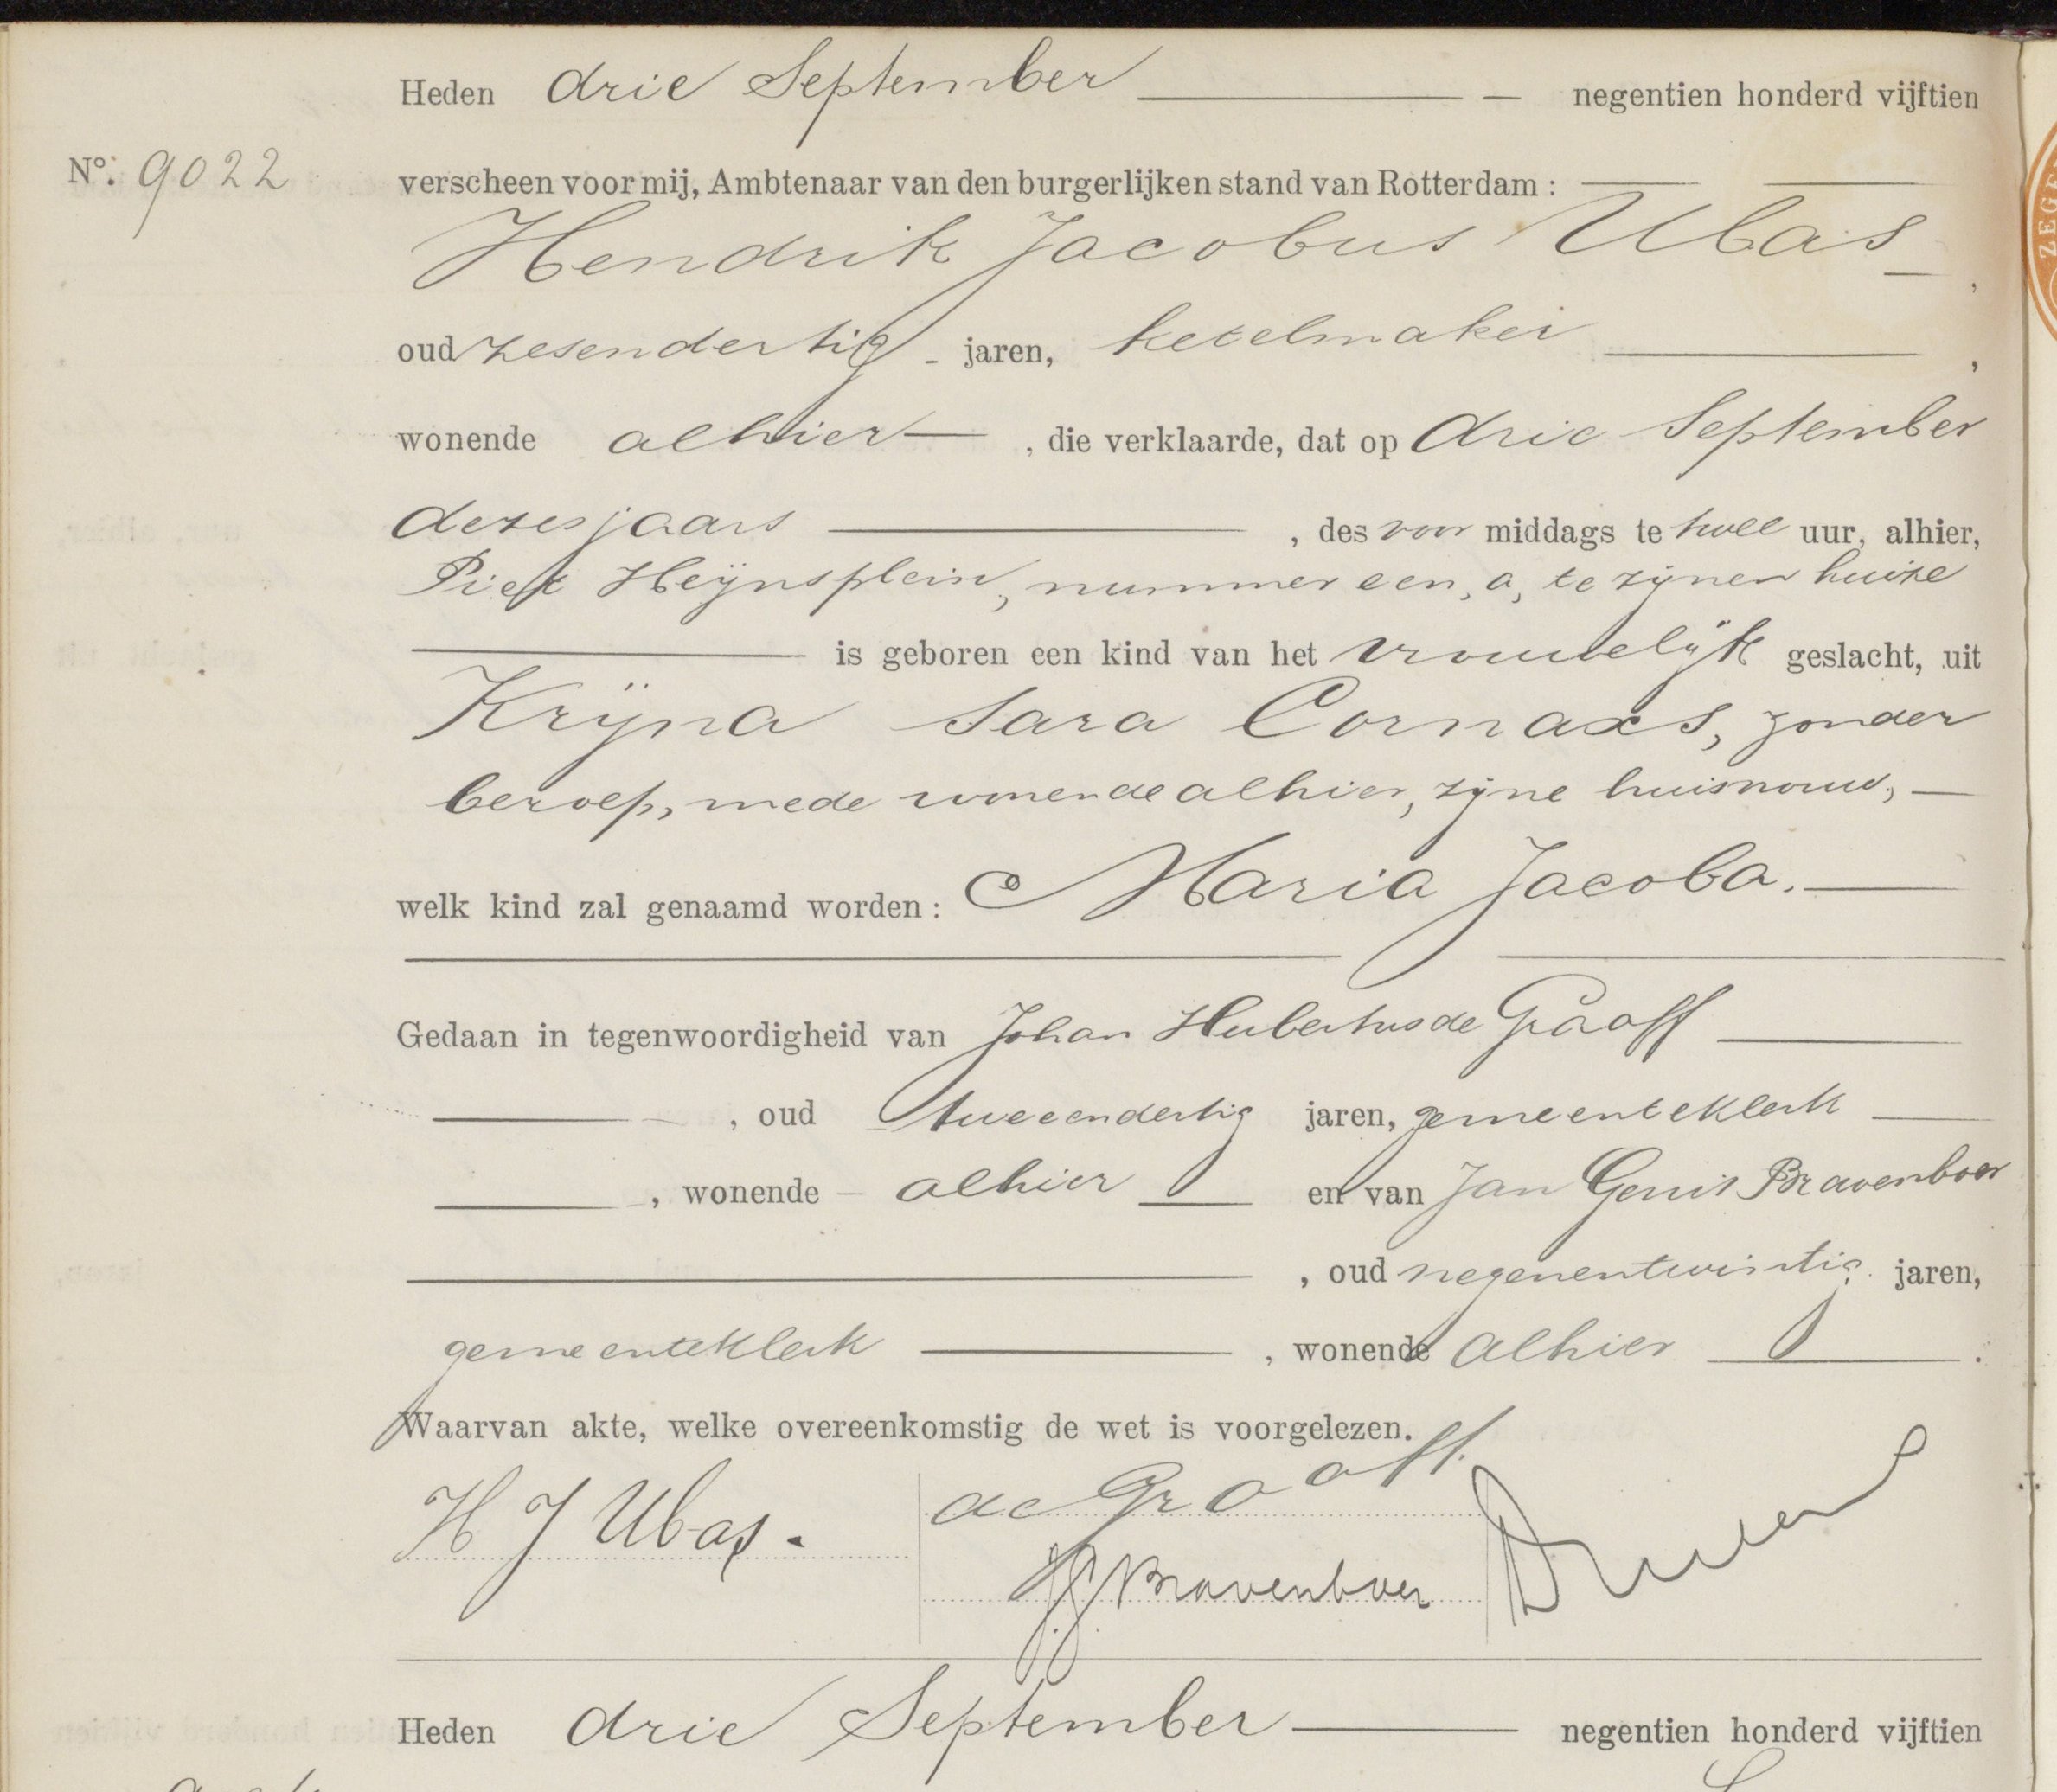 Heden drie September negentien honderd vijftien
No. 9022
verscheen voor mij, Ambtenaar van den burgerlijken stand van Rotterdam:
Hendrik Jacobus Ubas,
oud zesendertig jaren, ketelmaker,
wonende alhier, die verklaarde, dat op drie September
dezes jaars, des voor middags te twee uur, alhier,
Piet Heijnsplein, nummer een, a, te zijnen huize
is geboren een kind van het vrouwelijk geslacht, uit
Krijna Sara Cornaxs, zonder
beroep, mede wonende alhier, zijne huisvrouw,
welk kind zal genaamd worden: Maria Jacoba.
Gedaan in tegenwoordigheid van Johan Hubertus de Graaff
, oud tweeendertig jaren, gemeenteklerk
, wonende alhier en van Jan Gerrit Bravenboer
, oud negenentwintig jaren,
gemeenteklerk, wonende alhier.
Waarvan akte, welke overeenkomstig de wet is voorgelezen.
H J Ubas.
de Graaff.
J.G. Bravenboer
Heden drie September negentien honderd vijftien